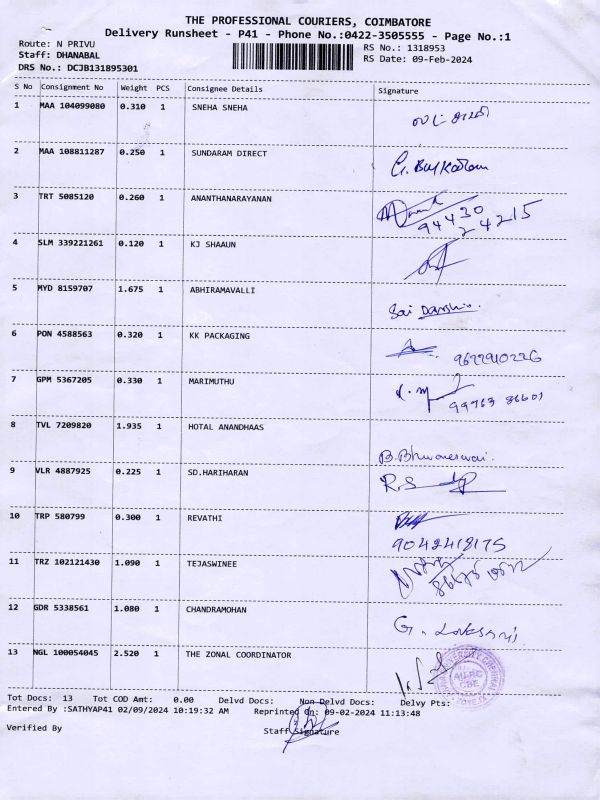 THE PROFESSIONAL COURIERS, COIMBATORE
Delivery Runsheet - P41 - Phone No.:0422-3505555 - Page No.:1
Route: N PRIVU
Staff: DHANABAL
DRS No.: DCJB131895301
RS No.: 1318953
RS Date: 09-Feb-2024
S No Consignment No Weight PCS Consignee Details Signature
1 MAA 104099080 0.310 1 SNEHA SNEHA
2 MAA 108811287 0.250 1 SUNDARAM DIRECT
3 TRT 5085120 0.260 1 ANANTHANARAYANAN
94430
24215
4 SLM 339221261 0.120 1 KJ SHAAUN
5 MYD 8159707 1.675 1 ABHIRAMAVALLI
Sai
6 PON 4588563 0.320 1 KK PACKAGING
7 GPM 5367205 0.330 1 MARIMUTHU
99963 86601
8 TVL 7209820 1.935 1 HOTAL ANANDHAAS
B.Bhuvaneswari.
9 VLR 4887925 0.225 1 SD.HARIHARAN
R.S
10 TRP 580799 0.300 1 REVATHI
9042418175
11 TRZ 102121430 1.090 1 TEJASWINEE
12 GDR 5338561 1.080 1 CHANDRAMOHAN
G.
13 NGL 100054045 2.520 1 THE ZONAL COORDINATOR
Tot Docs: 13 Tot COD Amt: 0.00 Delvd Docs: Non Delvd Docs: Delvy Pts:
Entered By :SATHYAP41 02/09/2024 10:19:32 AM Reprinted On: 09-02-2024 11:13:48
Verified By Staff Signature